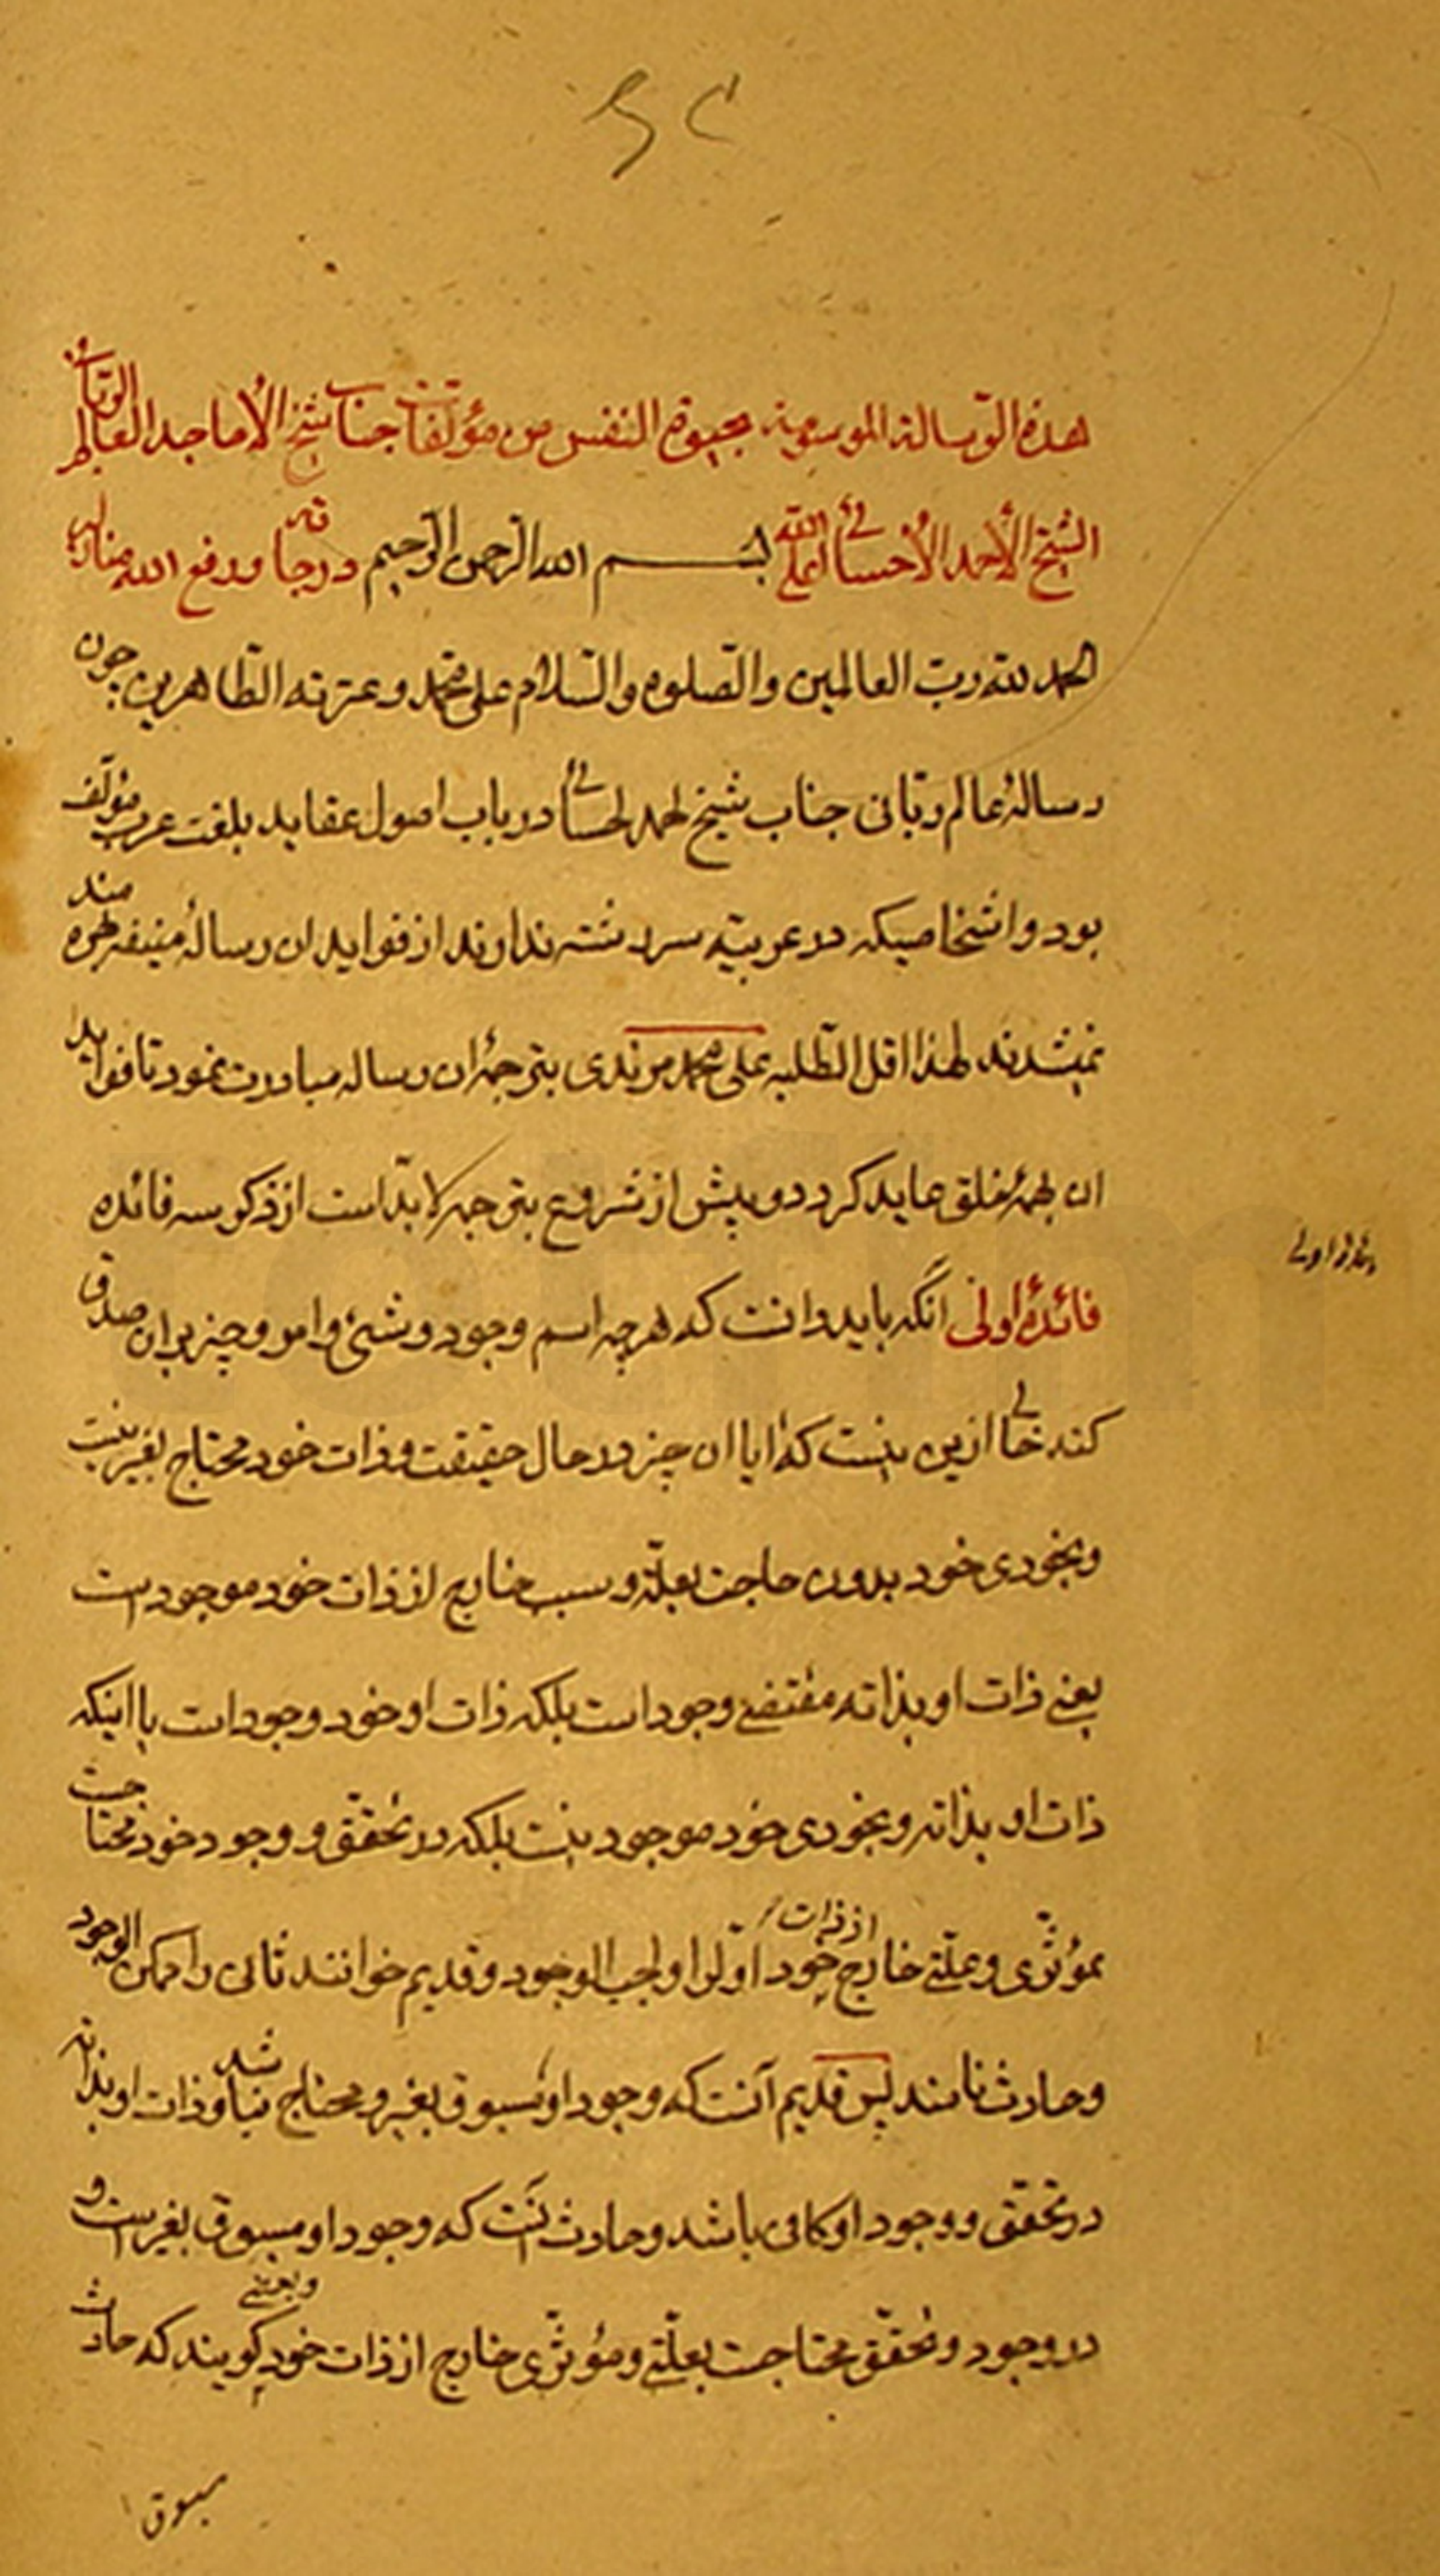 هذه الرسالة الموسومة بحیوة النفس من مؤلفات جناب شیخ الأماجد العالم الربانی
الشیخ الأحمد الأحسائی اعلی الله بسم الله الرحمن الرحیم درجاته ورفع الله مناره
الحمد لله رب العالمین والصلوه والسلام علی محمد وعترته الطاهرین چون
رسالهٔ عالم ربانی جناب شیخ احمد احسائی در باب اصول عقاید بلغت عرب مؤلف
بود و اشخاصیکه در عربیّه سررشته ندارند از فواید ان رسالهٔ منیفه بهره مند
نمیشدند لهذا اقل الطلبه علی محمد مرندی بترجمهٔ ان رساله مبادرت نمود تا فواید
ان بهمهٔ خلق عاید کردد و پیش از شروع بترجمه لابدّ است از ذکر سه فائده
فائدهٔ اولی انکه باید دانست که هرچه اسم وجود و شیئ وامر و چیز بران صدق
فائدهٔ اولی
کند خالی ازین نیست که ایا ان چیز در حال حقیقت و ذات خود محتاج بغیر نیست
وبخودی خود بدون حاجت بعلّة و سبب خارج از ذات خود موجود است
یعنی ذات او بذاته مقتضی وجود است بلکه ذات او خود وجود است یا اینکه
ذات او بذاته و بخودی خود موجود نیست بلکه در تحقّق و وجود خود محتاجست
بمؤثّری و علّتی خارج از ذات خود اوّل را واجب الوجود و قدیم خوانند ثانی را ممکن الوجود
وحادث نامند پس قدیم آنست که وجود او مسبوق بغیر و محتاج نباشد و ذات او بذاته
در تحقّق و وجود او کافی باشد و حادث انست که وجود او مسبوق بغیر است و
در وجود و تحقّق محتاجست بعلّتی و مؤثّری خارج از ذات خود و بعضی کویند که حادث
مسبوق